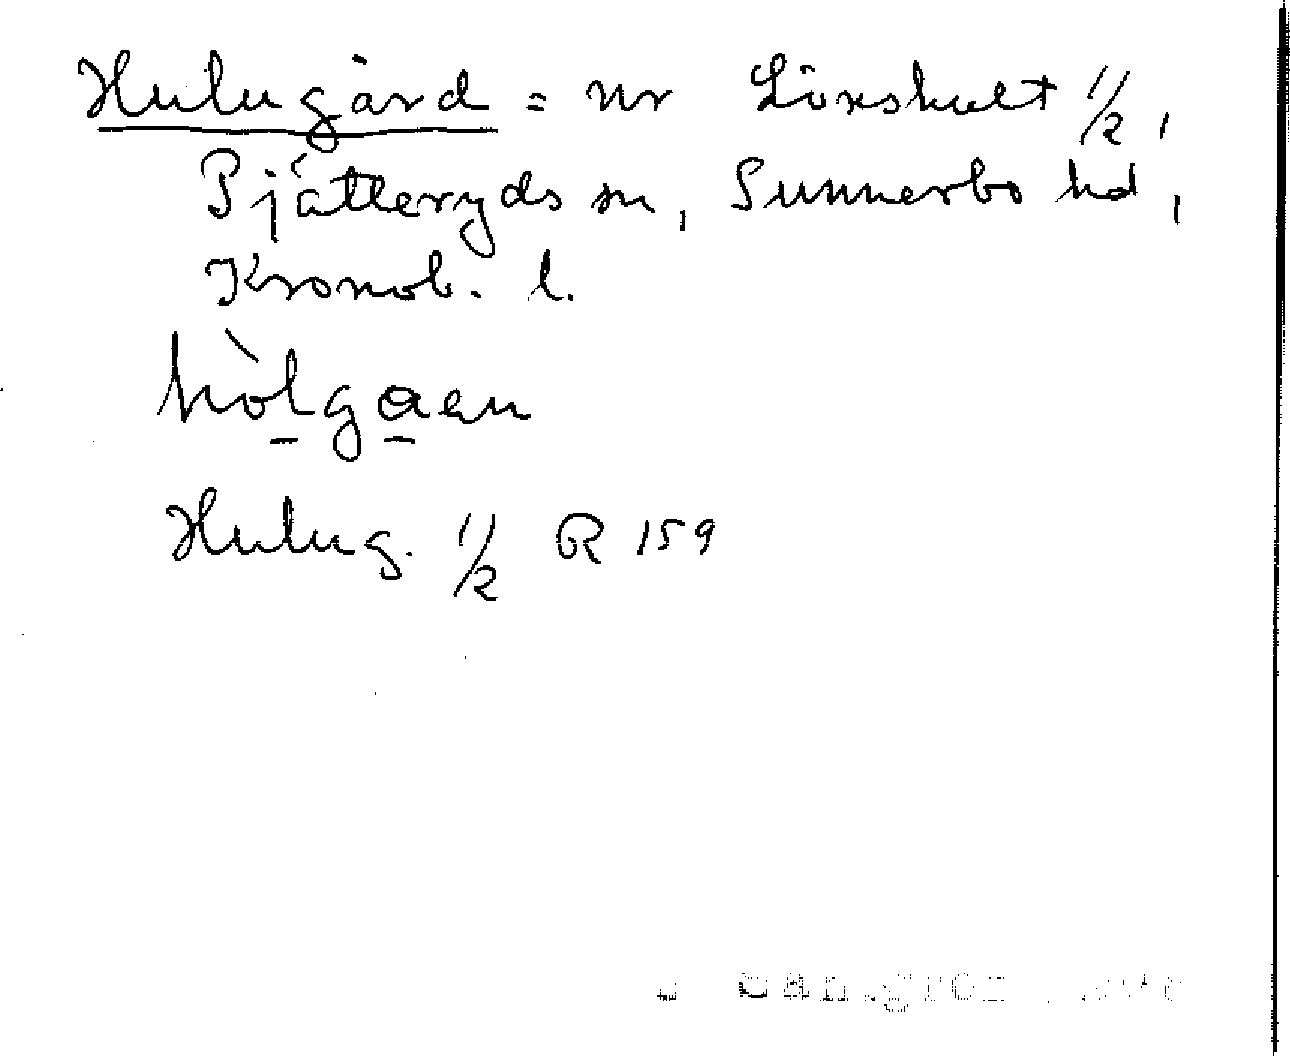 Hulugård = nr Löxshult 1/2,
Pjätteryds sn, Sunnerbo hd,
Kronob. l.
hòlgaen
Hulug. 1/2 R 159